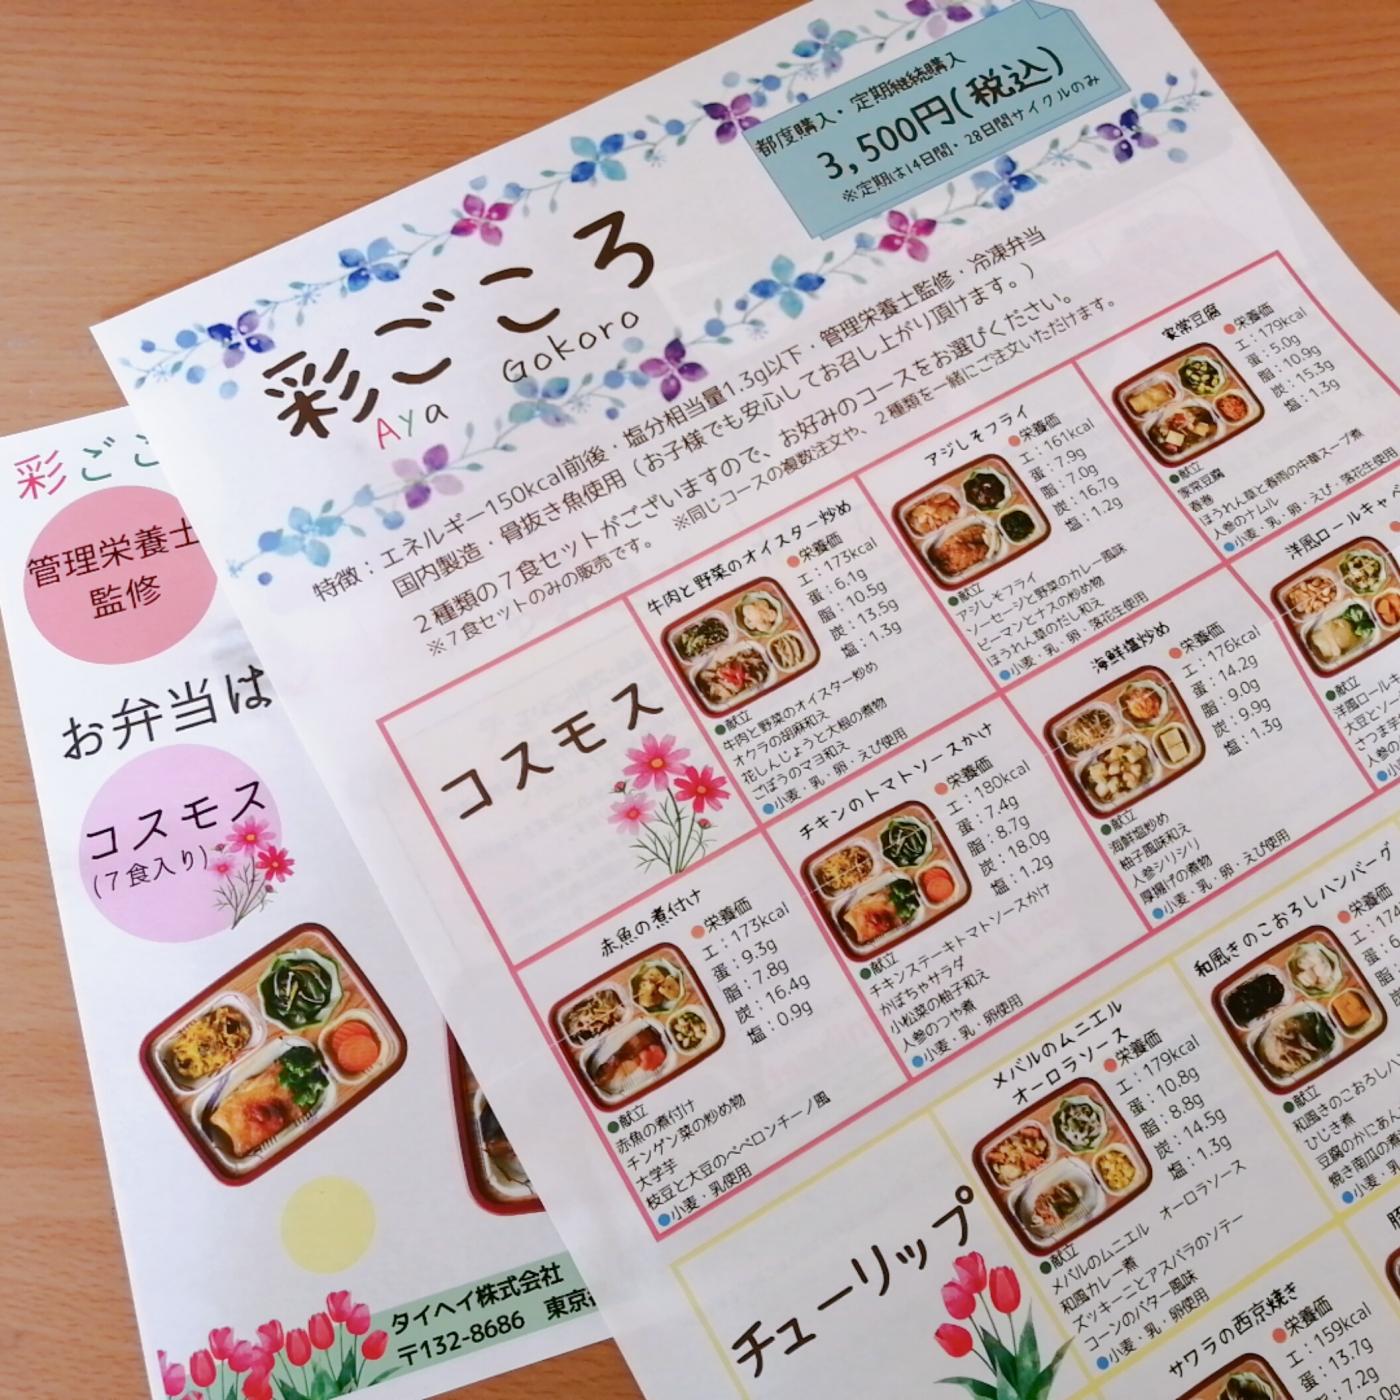 都度購入・定期継続購入
3,500円(税込)
※定期は14日間・28日間サイクルのみ
彩ごころ
Aya Gokoro
特徴：エネルギー150kcal前後・塩分相当量1.3g以下・管理栄養士監修・冷凍弁当
国内製造・骨抜き魚使用（お子様でも安心してお召し上がり頂けます。）
２種類の７食セットがございますので、お好みのコースをお選びください。
※７食セットのみの販売です。　※同じコースの複数注文や、２種類を一緒にご注文いただけます。
コスモス
牛肉と野菜のオイスター炒め
●栄養価
エ：173kcal
蛋：6.1g
脂：10.5g
炭：13.5g
塩：1.3g
●献立
牛肉と野菜のオイスター炒め
オクラの胡麻和え
花しんじょうと大根の煮物
ごぼうのマヨ和え
●小麦・乳・卵・えび使用
アジしそフライ
●栄養価
エ：161kcal
蛋：7.9g
脂：7.0g
炭：16.7g
塩：1.2g
●献立
アジしそフライ
ソーセージと野菜のカレー風味
ピーマンとナスの炒め物
ほうれん草のだし和え
●小麦・乳・卵・落花生使用
家常豆腐
●栄養価
エ：179kcal
蛋：5.0g
脂：10.9g
炭：15.3g
塩：1.3g
●献立
家常豆腐
春巻
ほうれん草と春雨の中華スープ煮
人参のナムル
●小麦・乳・卵・えび・落花生使用
赤魚の煮付け
●栄養価
エ：173kcal
蛋：9.3g
脂：7.8g
炭：16.4g
塩：0.9g
●献立
赤魚の煮付け
チンゲン菜の炒め物
大学芋
枝豆と大豆のペペロンチーノ風
●小麦・乳使用
チキンのトマトソースかけ
●栄養価
エ：180kcal
蛋：7.4g
脂：8.7g
炭：18.0g
塩：1.2g
●献立
チキンステーキトマトソースかけ
かぼちゃサラダ
小松菜の柚子和え
人参のつや煮
●小麦・乳・卵使用
海鮮塩炒め
●栄養価
エ：176kcal
蛋：14.2g
脂：9.0g
炭：9.9g
塩：1.3g
●献立
海鮮塩炒め
柚子風味和え
人参シリシリ
厚揚げの煮物
●小麦・乳・卵・えび使用
洋風ロールキャベ
●献立
洋風ロールキ
大豆とソ
さつま
人参の
チューリップ
メバルのムニエル
オーロラソース
●栄養価
エ：179kcal
蛋：10.8g
脂：8.8g
炭：14.5g
塩：1.3g
●献立
メバルのムニエル　オーロラソース
和風カレー煮
ズッキーニとアスパラのソテー
コーンのバター風味
●小麦・乳・卵使用
和風きのこおろしハンバーグ
●栄養価
●献立
和風きのこおろしハン
ひじき煮
豆腐のかにあん
焼き南瓜の煮
●小麦・乳
サワラの西京焼き
●栄養価
エ：159kcal
蛋：13.7g
脂：7.2g
彩ごこ
管理栄養士
監修
お弁当は
コスモス
(７食入り)
タイヘイ株式会社
〒132-8686　東京